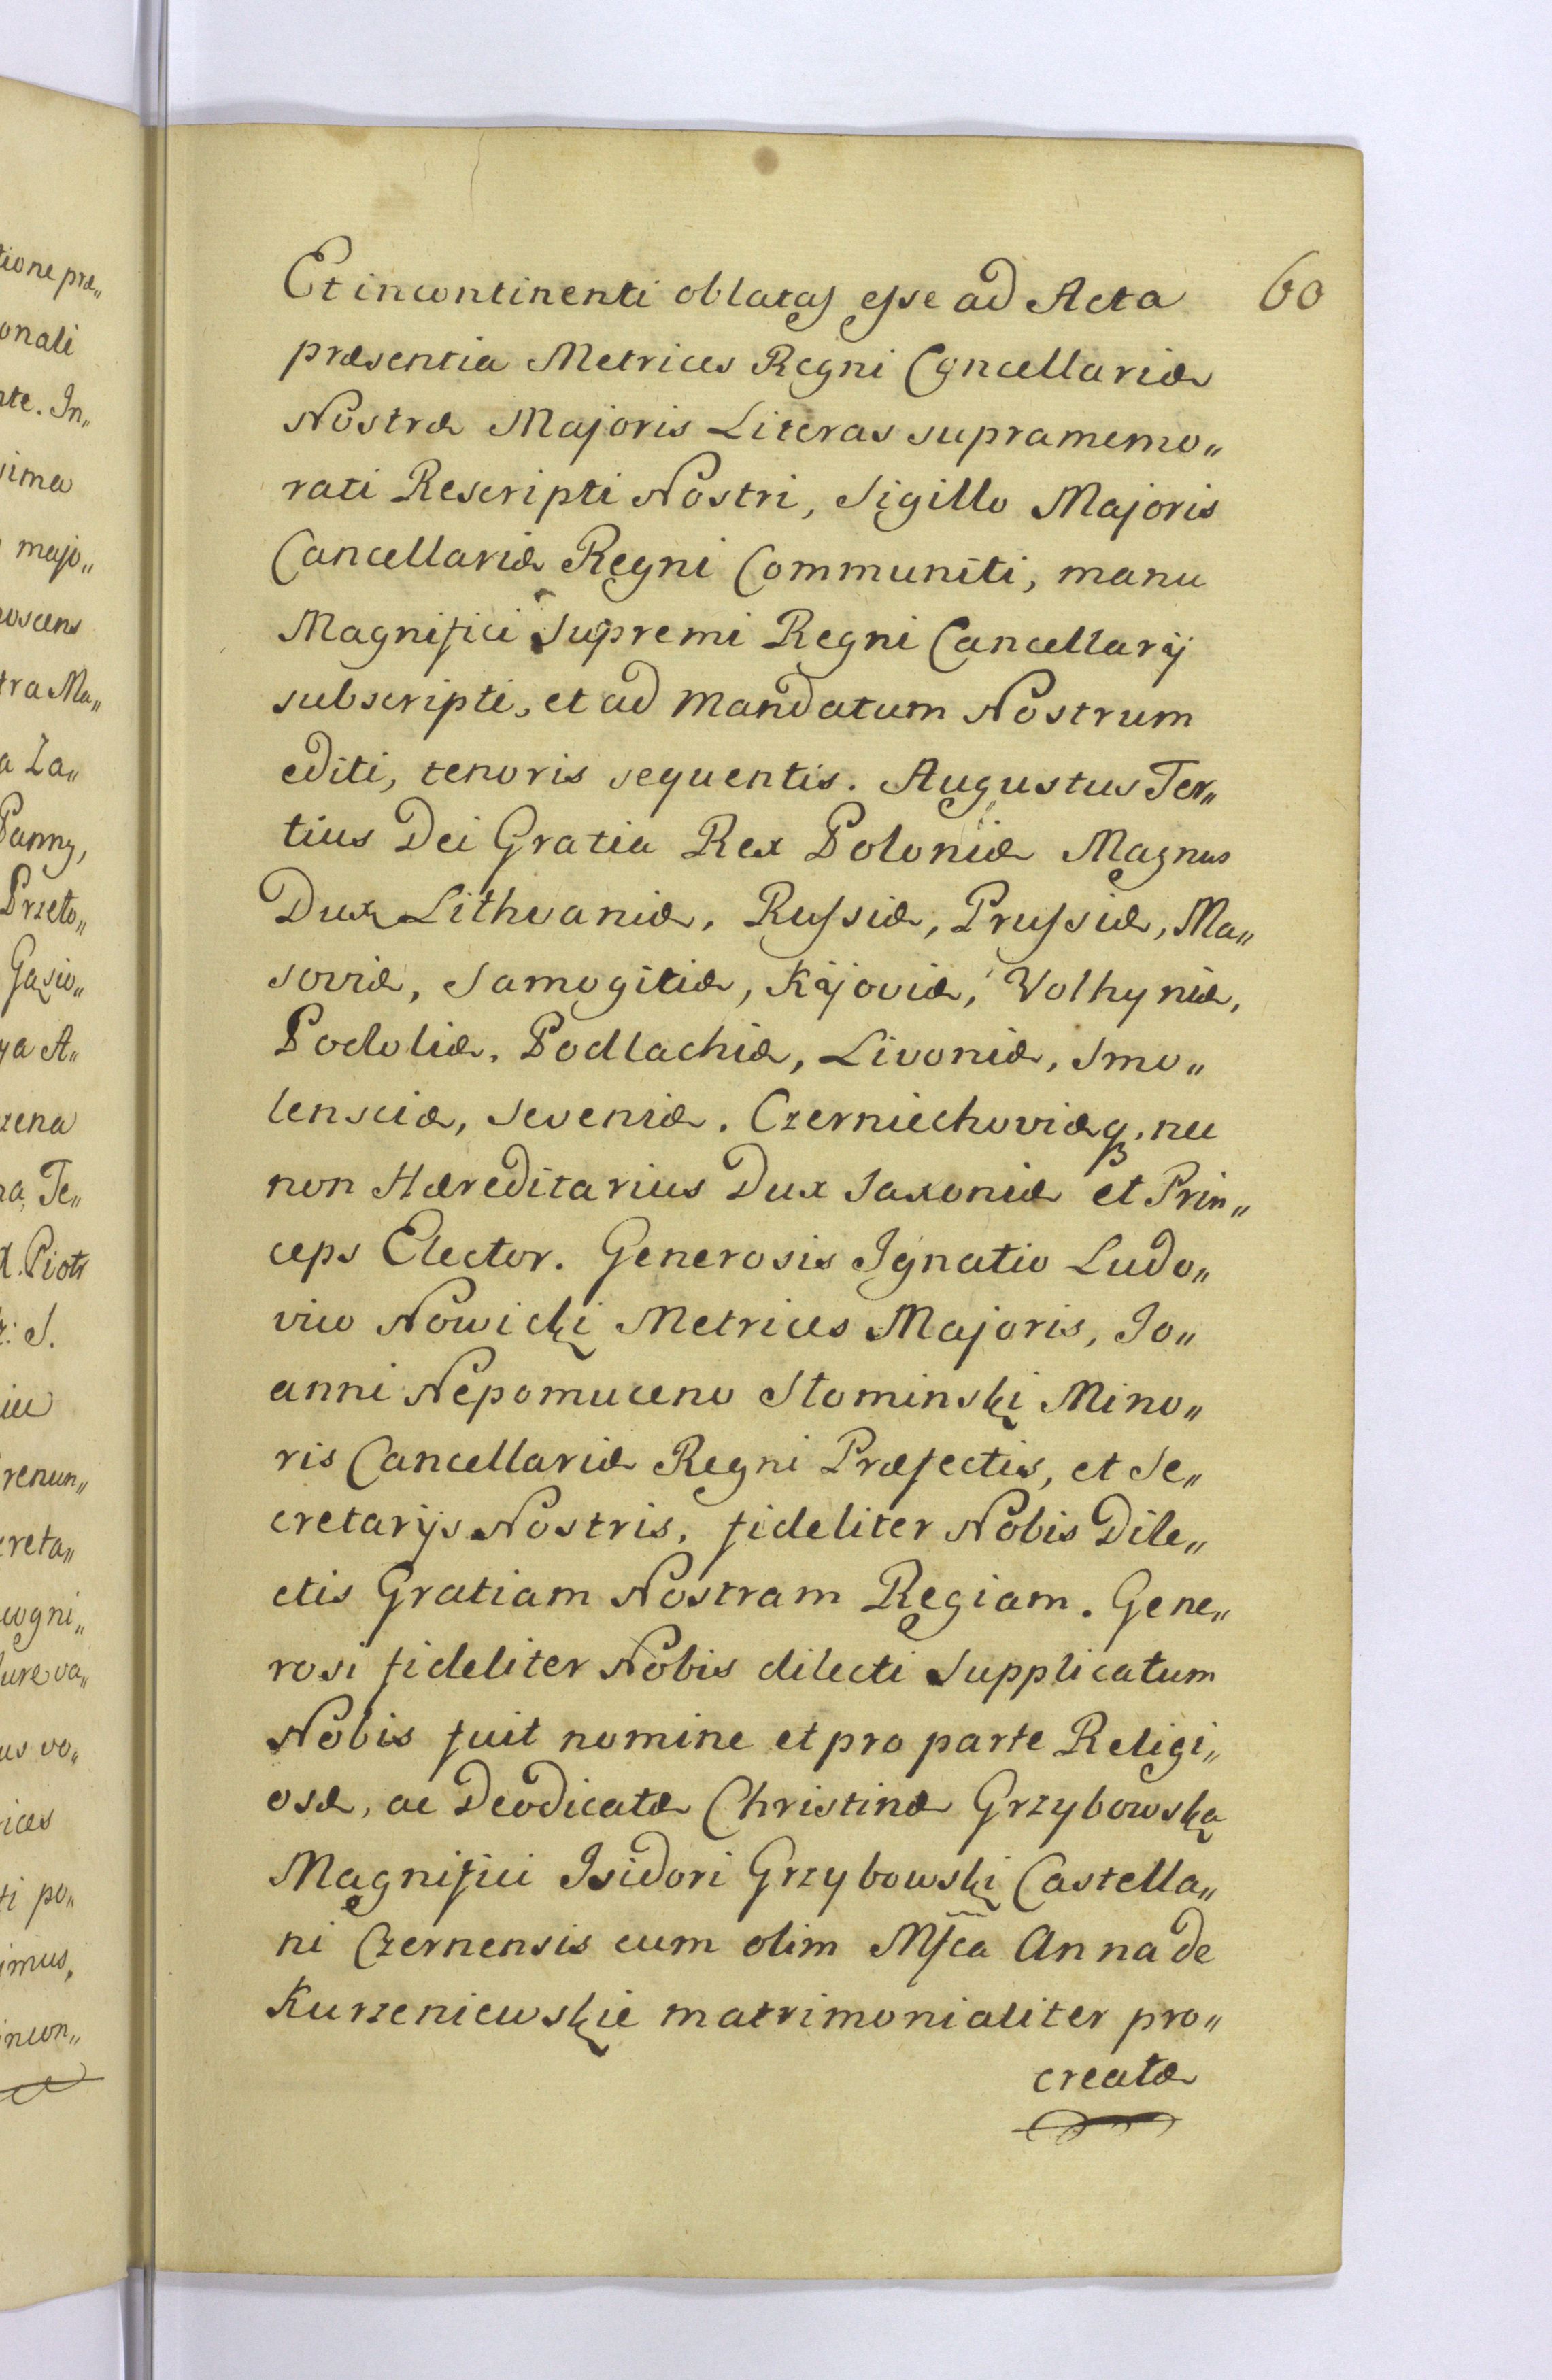 60
Et incontinenti oblatas esse ad Acta
præsentia Metrices Regni Cancellariæ
Nostræ Majoris Literas supramemo„
rati Rescripti Nostri, Sigillo Majoris
Cancellariæ Regni Communiti, manu
Magnifici Supremi Regni Cancellarij
subscripti, et ad Mandatum Nostrum
editi, tenoris sequentis. Augustus Ter„
tius Dei Gratia Rex Poloniæ Magnus
Dux Lithvaniæ, Russiæ, Prussiæ, Ma„
soviæ, Samogitiæ, Kijoviæ, Volhyniæ,
Podoliæ, Podlachiæ, Livoniæ, Smo„
lensciæ, Seveniæ. Czerniechoviæq, nec
non Hæreditarius Dux Saxoniæ et Prin„
ceps Elector. Generosis Ignatio Ludo„
vico Nowicki Metrices Majoris, Jo„
anni Nepomuceno Słominski Mino„
ris Cancellariæ Regni Præfectis, et Se„
cretarijs Nostris, fideliter Nobis Dile„
ctis Gratiam Nostram Regiam. Gene„
rosi fideliter Nobis dilecti Supplicatum
Nobis fuit nomine et pro parte Religi„
osæ, ac Deodicatæ Christinæ Grzybowska
Magnifici Isidori Grzybowski Castella„
ni Czernensis cum olim Mfca Anna de
Kurzeniewskie matrimonialiter pro„
creatæ
tione præ„
onali
nte. In„
sima
majo„
noscens
tra Ma„
a Za„
Panny,
Przeto„
Gasio„
ya A„
zena
na, Te„
X. Piotr
r: S.
renun„
creta„
cogni„
Jure va„
us vo„
rices
ti po„
imus,
incon„